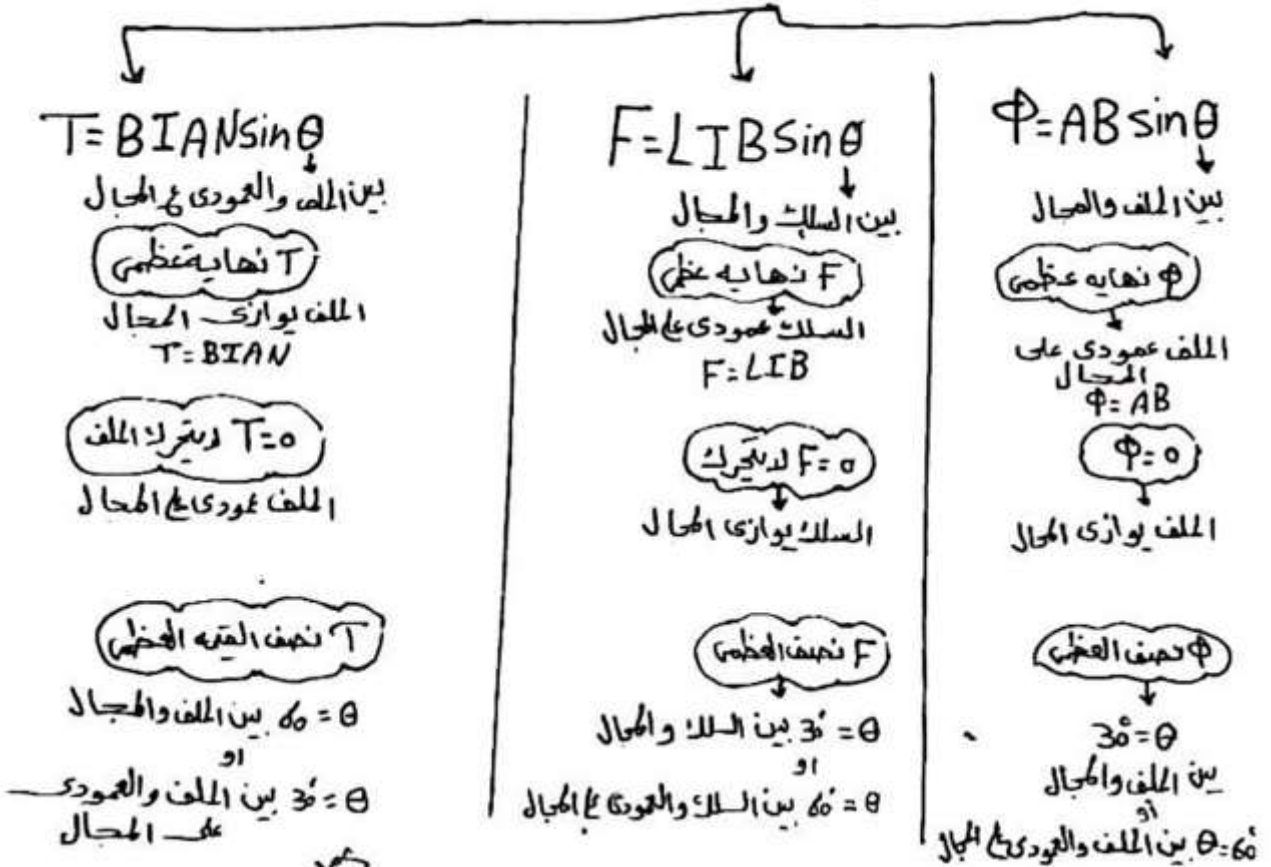 Φ=AB sinθ
بين الملف والمجال
Φ نهايه عظمى
الملف عمودى على
المجال
Φ=AB
Φ=0
الملف يوازى المجال
Φ نصف العظمى
30°=θ
بين الملف والمجال
أو
θ=60° بين الملف والعمودى ع المجال
F=LIBSinθ
بين السلك والمجال
F نهايه عظمى
السلك عمودى على المجال
F=LIB
F=0 لا يتحرك
السلك يوازى المجال
F نصف العظمى
θ=30° بين السلك والمجال
او
θ=60° بين السلك والعمودى ع المجال
T=BIANsinθ
بين الملف والعمودى ع المجال
T نهاية عظمى
الملف يوازى المجال
T=BIAN
T=0 لا يتحرك الملف
الملف عمودى ع المجال
T نصف القيمه العظمى
θ=60 بين الملف والمجال
او
θ=30° بين الملف والعمودى
على المجال